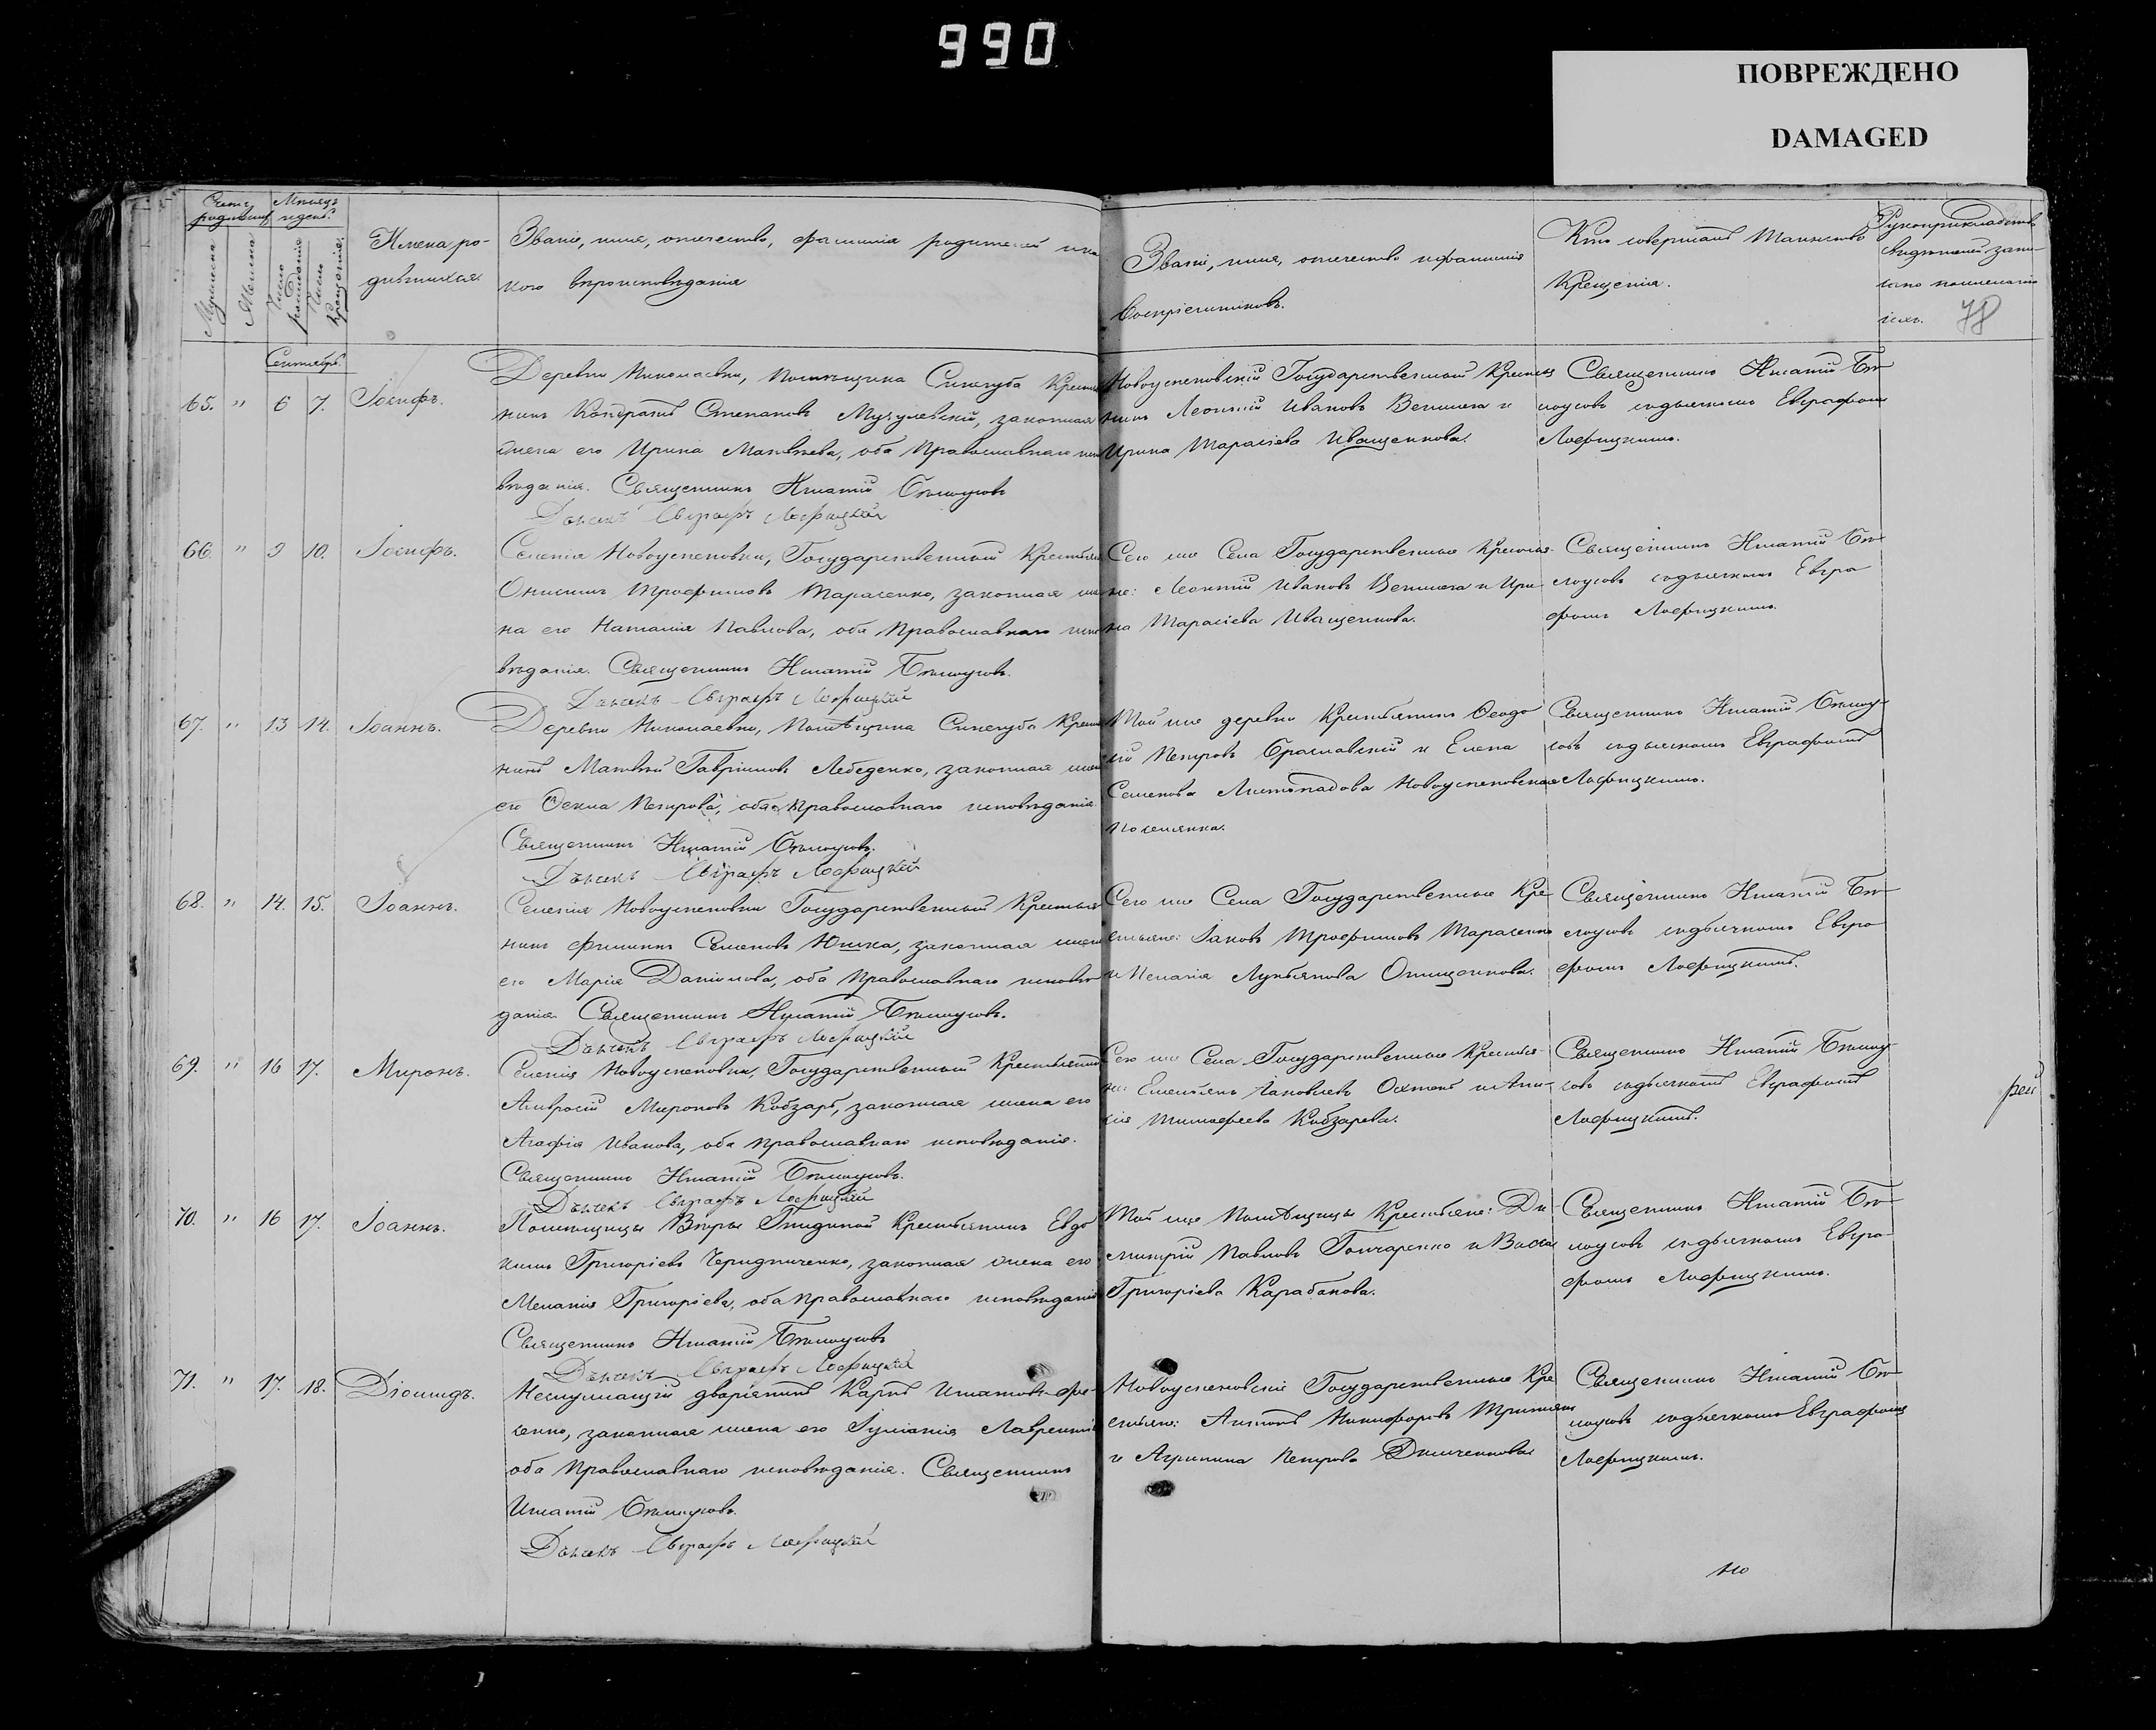 990
ПОВРЕЖДЕНО
DAMAGED
Счетъ родившихся
Мѣсяцъ и день.
Мужеска
Женска
Число рожденія
Число Крещенія.
Имена ро-
дившихся.
Званіе, имя, отечество, фамилія родителей и ка
кого вѣроисповѣданія
Званіе, имя, отечество и фамилія
Воспріемниковъ.
Кто совершалъ Таинство
Крещенія.
Рукоприкладство
свидѣтелей запи-
си по желанію
ихъ.
78
Сентябрь.
65. " 6 7. Іосифъ.
Деревни Николаевки, Помѣщика Синегуба Крестья
нинъ Кондратъ Степановъ законная
жена его Ирина Матвѣева, оба Православнаго испо
вѣданія. Священникъ Игнатій Бѣлоусовъ
Дьячекъ Евграфъ Лофицкій
Новоуспеновскій Государственный Крестья
нинъ Леонтій Ивановъ Велигега и
Ирина Тарасіева Иващенкова.
Священникъ Игнатій Бѣ-
лоусовъ съ дьячкомъ Евграфомъ
Лофицкимъ.
66 " 9 10. Іосифъ.
Селенія Новоуспеновки, Государственный Крестьян
Онисимъ Трофимовъ Тарасенко, законная же
на его Наталія Павлова, оба Православнаго испо
вѣданія. Священникъ Игнатій Бѣлоусовъ.
Дьячекъ Евграфъ Лофицкій
Сего же Села Государственные Крестья-
не: Леонтій Ивановъ Велигега и Ири
на Тарасіева Иващенкова.
Священникъ Игнатій Бѣ-
лоусовъ съ дьячкомъ Евгра
фомъ Лофицкимъ.
67. " 13 14. Іоаннъ.
Деревни Николаевки, Помѣщика Синегуба Крестья
нинъ Матвѣй Гавріиловъ Лебеденко, законная жена
его Ѳекла Петрова, оба Православнаго исповѣданія.
Священникъ Игнатій Бѣлоусовъ.
Дьячекъ Евграфъ Лофицкій
Той же деревни Крестьянинъ Ѳеодо
сій Петровъ Браславскій и Елена
Семенова Листопадова Новоуспеновская
поселянка.
Священникъ Игнатій Бѣлоу-
совъ съ дьячкомъ Евграфомъ
Лофицкимъ.
68. " 14. 15. Іоаннъ.
Селенія Новоуспеновки Государственный Крестья
нинъ Филиппъ Семеновъ Юшка, законная жена
его Марія Даніилова, оба Православнаго исповѣ
данія. Священникъ Игнатій Бѣлоусовъ.
Дьячекъ Евграфъ Лофицкій
Сего же Села Государственные Кре
стьяне: Іаковъ Трофимовъ Тарасенко
и Меланія Лукьянова Онищенкова.
Священникъ Игнатій Бѣ-
лоусовъ съ дьячкомъ Евгра
фомъ Лофицкимъ.
69. " 16 17. Миронъ.
Селенія Новоуспеновки, Государственный Крестьянинъ
Амвросій Мироновъ Кобзарь, законная жена его
Агафія Иванова, оба Православнаго исповѣданія.
Священникъ Игнатій Бѣлоусовъ.
Дьячекъ Евграфъ Лофицкій
Сего же Села Государственные Крестья-
не: Емельянъ Іаковлевъ и
Тимофеева Кобзарева.
Священникъ Игнатій Бѣлоу-
совъ съ дьячкомъ Евграфомъ
Лофицкимъ.
рей
70. " 16 17. Іоаннъ.
Помѣщицы Вѣры Гнидиной Крестьянинъ Евдо
кимъ Григоріевъ Чередниченко, законная жена его
Меланія Григоріева, оба Православнаго исповѣданія
Священникъ Игнатій Бѣлоусовъ
Дьячекъ Евграфъ Лофицкій
Той же Помѣщицы Крестьяне: Ди-
митрій Павловъ Гончаренко и Васса
Григоріева Карабанова.
Священникъ Игнатій Бѣ-
лоусовъ съ дьячкомъ Евгра-
фомъ Лофицкимъ.
71. " 17. 18. Діомидъ.
Неслужащій дворянинъ Карпъ Игнатовъ
законная жена его Іуліанія Лаврентіе
оба Православнаго исповѣданія. Священникъ
Игнатій Бѣлоусовъ.
Дьячекъ Евграфъ Лофицкій
Новоуспеновскіе Государственные Кре
стьяне: Антонъ Никифоровъ
и Агрипина Петрова
Священникъ Игнатій Бѣ-
лоусовъ съ дьячкомъ Евграфомъ
Лофицкимъ.
но